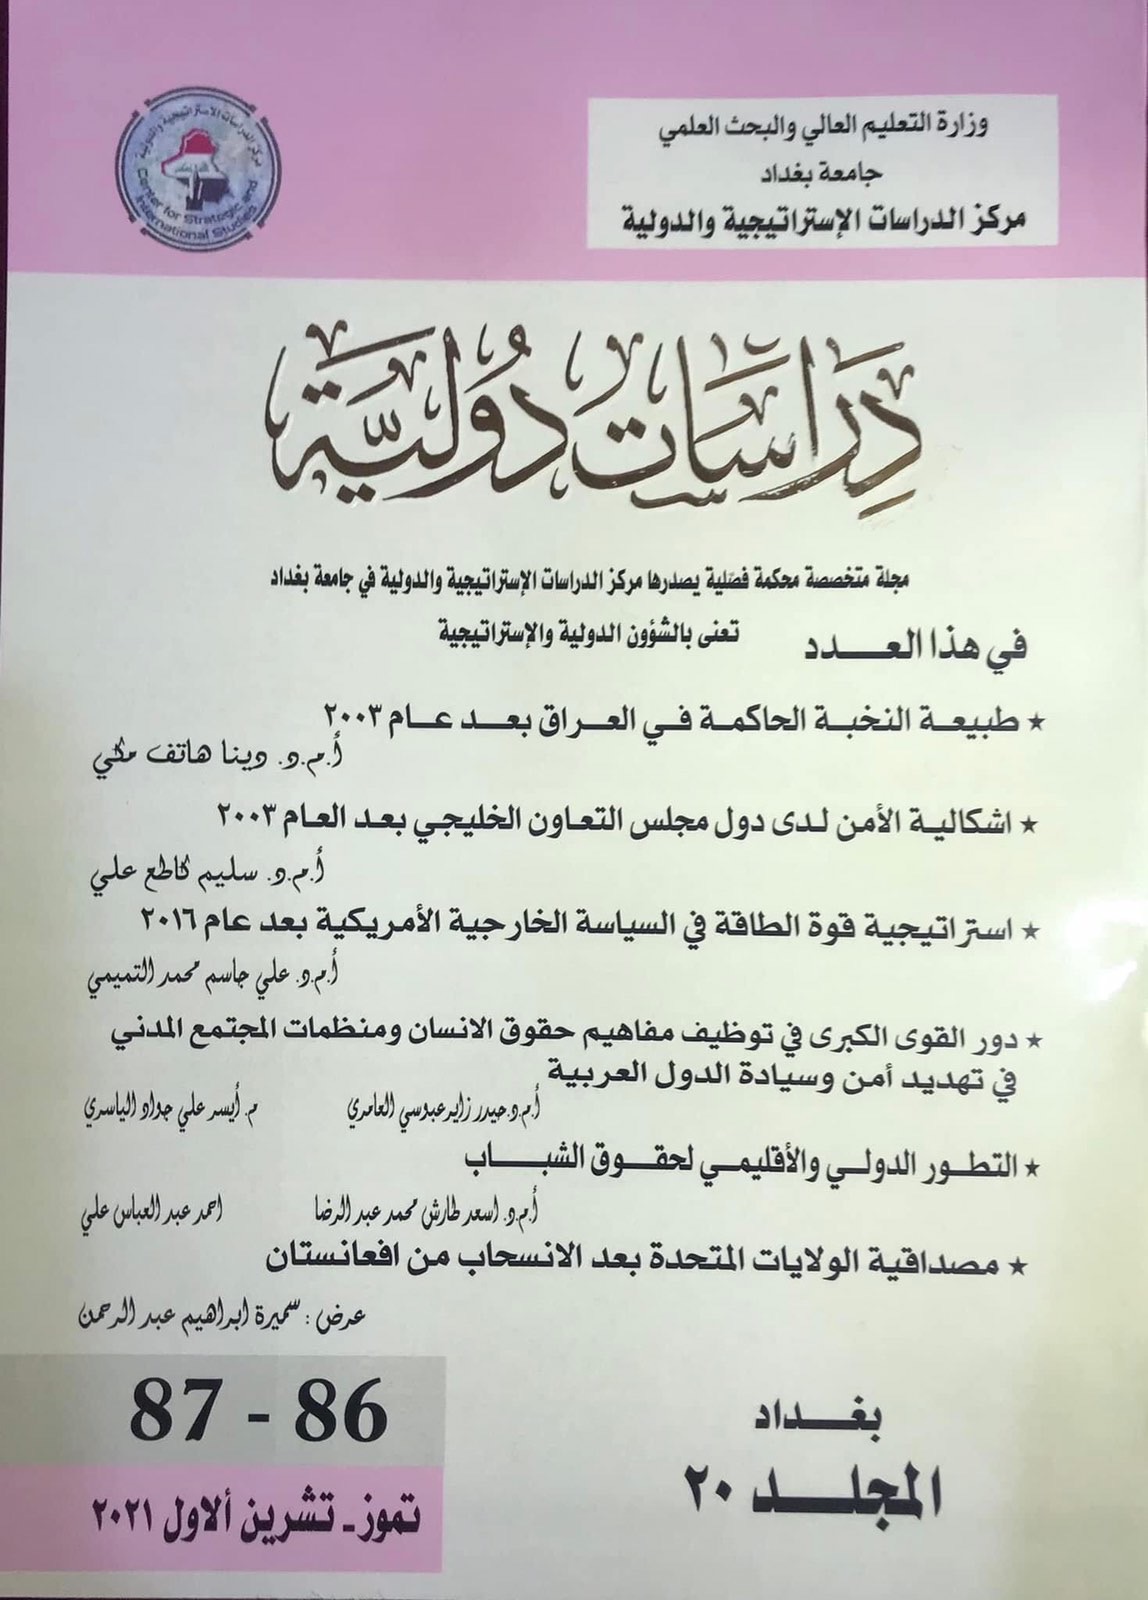 وزارة التعليم العالي والبحث العلمي
جامعة بغداد
مركز الدراسات الإستراتيجية والدولية
مركز الدراسات الاستراتيجية والدولية
Center for Strategic and
International Studies
دِرَاسَات دُوَليَّة
مجلة متخصصة محكمة فصّلية يصدرها مركز الدراسات الإستراتيجية والدولية في جامعة بغداد
تعنى بالشؤون الدولية والإستراتيجية
في هذا العـــدد
★ طبيعـة النخبـة الحاكمـة فـي العـراق بعـد عـام ٢٠٠٣
أ.م.د. دينا هاتف مكي
★ اشكاليـة الأمن لـدى دول مجلس التعـاون الخليجـي بعـد العـام ٢٠٠٣
أ.م.د. سليم كاطع علي
★ استراتيجية قوة الطاقة في السياسة الخارجية الأمريكية بعد عام ٢٠١٦
أ.م.د. علي جاسم محمد التميمي
★ دور القوى الكبرى في توظيف مفاهيم حقوق الانسان ومنظمات المجتمع المدني
في تهديد أمن وسيادة الدول العربية
أ.م.د.حيدر زاير عبوسي العامري م. أيسر علي جواد الياسري
★ التطـور الدولـي والأقليمـي لحقـوق الشبـــاب
أ.م.د. اسعد طارش محمد عبد الرضا احمد عبد العباس علي
★ مصداقية الولايات المتحدة بعد الانسحاب من افغانستان
عرض : سميرة ابراهيم عبد الرحمن
بغـــداد
المجلـــد ٢٠
87 - 86
تموز- تشرين ألاول ٢٠٢١